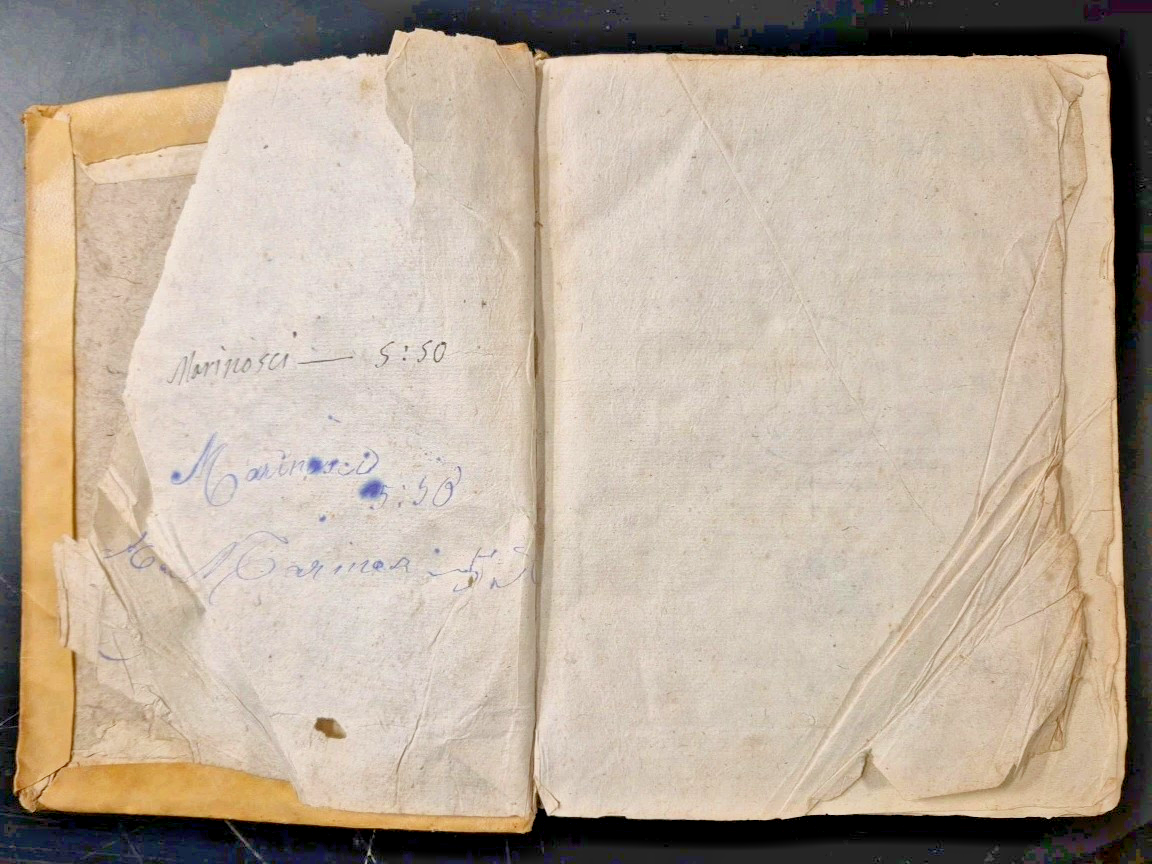 Marinosci — 5:50
Marinosci
5:50
Marinos